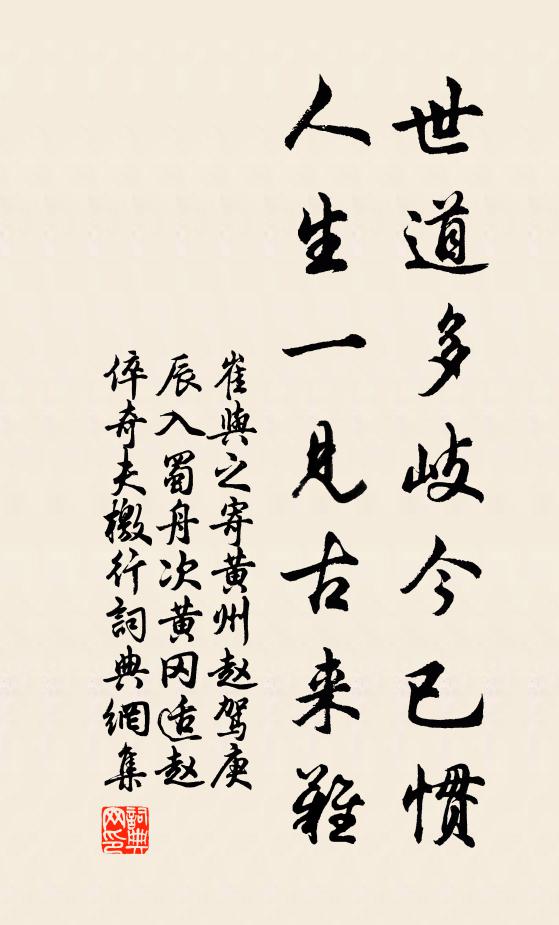 世道多歧今已惯
人生一见古来难
崔與之寄黄州赵驾庚
辰入蜀舟次黄冈适赵
倅奇夫檄行詞典網集
詞典网印